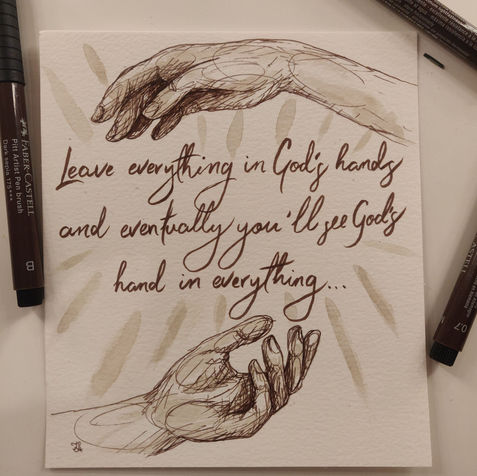 Leave everything in God's hands
and eventually you'll see God's
hand in everything...
FABER-CASTELL
Pitt Artist Pen brush
Dark sepia 175***
B
0.7